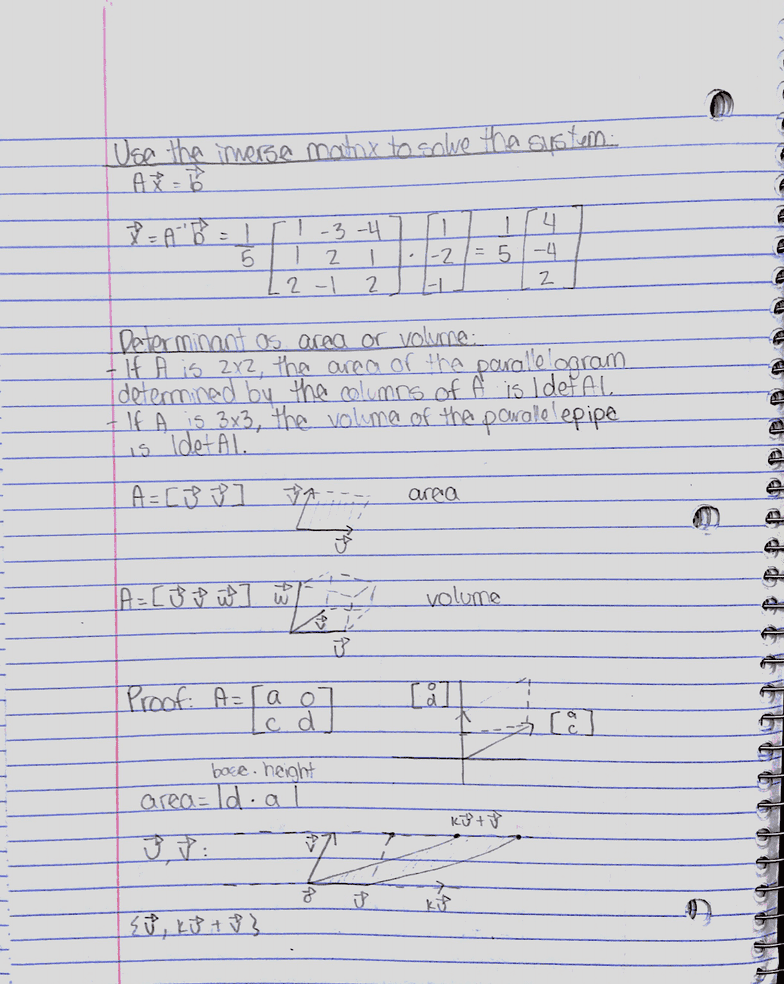 Use the inverse matrix to solve the system:
Ax⃗ = b⃗
x⃗ = A⁻¹b⃗ = 1/5 [1 -3 -4; 1 2 1; 2 -1 2] · [1; -2; -1] = 1/5 [4; -4; 2]
Determinant as area or volume:
- If A is 2x2, the area of the parallelogram
determined by the columns of A is |detA|.
- If A is 3x3, the volume of the parallelepipe
is |detA|.
A = [u⃗ v⃗] v⃗ area
u⃗
A = [u⃗ v⃗ w⃗] w⃗ v⃗ volume
u⃗
Proof: A = [a 0; c d] [0; d] [a; c]
base · height
area = |d · a|
ku⃗ + v⃗
u⃗, v⃗: v⃗
0⃗ u⃗ ku⃗
{u⃗, ku⃗ + v⃗}